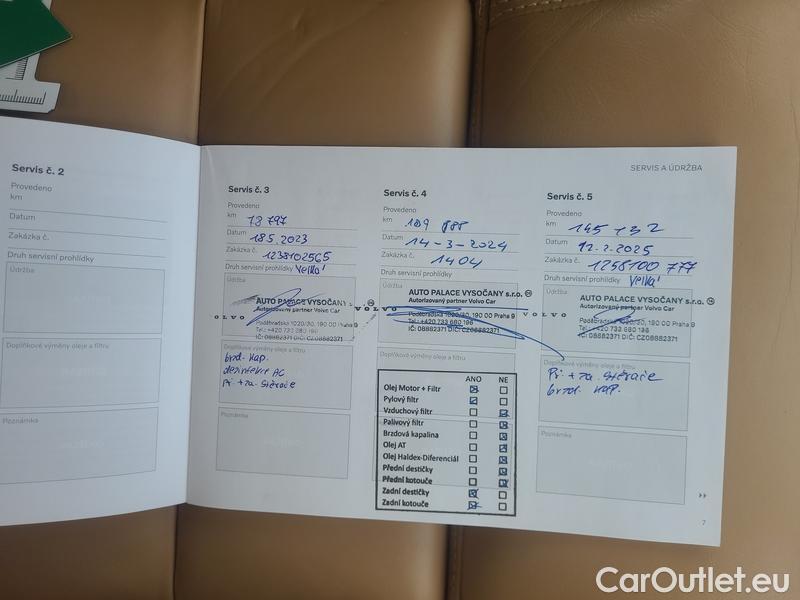 SERVIS A ÚDRŽBA
Servis č. 2
Provedeno
km
Datum
Zakázka č.
Druh servisní prohlídky
Údržba
Doplňkové výměny oleje a filtru
Poznámka
Servis č. 3
Provedeno
km 78 797
Datum 18.5.2023
Zakázka č. 1238102565
Druh servisní prohlídky Velká
Údržba
AUTO PALACE VYSOČANY
Autorizovaný partner Volvo Car
VOLVO
Poděbradská 1020/30, 190 00 Praha 9
Tel.: +420 733 680 196
IČ: 08882371 DIČ: CZ08882371
Doplňkové výměny oleje a filtru
brzd. kap.
dezinfekce AC
Př. + za. stěrače
Poznámka
Servis č. 4
Provedeno
km 109 888
Datum 14-3-2024
Zakázka č. 1404
Druh servisní prohlídky
Údržba
AUTO PALACE VYSOČANY s.r.o.
Autorizovaný partner Volvo Car
VOLVO
Poděbradská 1020/30, 190 00 Praha 9
Tel.: +420 733 680 196
IČ: 08882371 DIČ: CZ08882371
Doplňkové výměny oleje a filtru
ANO NE
Olej Motor + Filtr
Pylový filtr
Vzduchový filtr
Palivový filtr
Brzdová kapalina
Olej AT
Olej Haldex-Diferenciál
Přední destičky
Přední kotouče
Zadní destičky
Zadní kotouče
Servis č. 5
Provedeno
km 145 132
Datum 12.2.2025
Zakázka č. 1258100 777
Druh servisní prohlídky Velká
Údržba
AUTO PALACE VYSOČANY s.r.o.
Autorizovaný partner Volvo Car
VOLVO
Poděbradská 1020/30, 190 00 Praha 9
Tel.: +420 733 680 196
IČ: 08882371 DIČ: CZ08882371
Doplňkové výměny oleje a filtru
Př. + za. stěrače
brzd. kap.
Poznámka
7
CarOutlet.eu